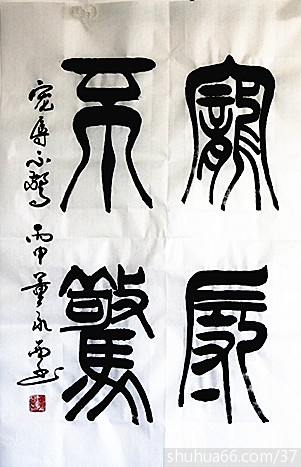 寵辱
不驚
宠辱不惊 丙申 董永西书
shuhua66.com/37